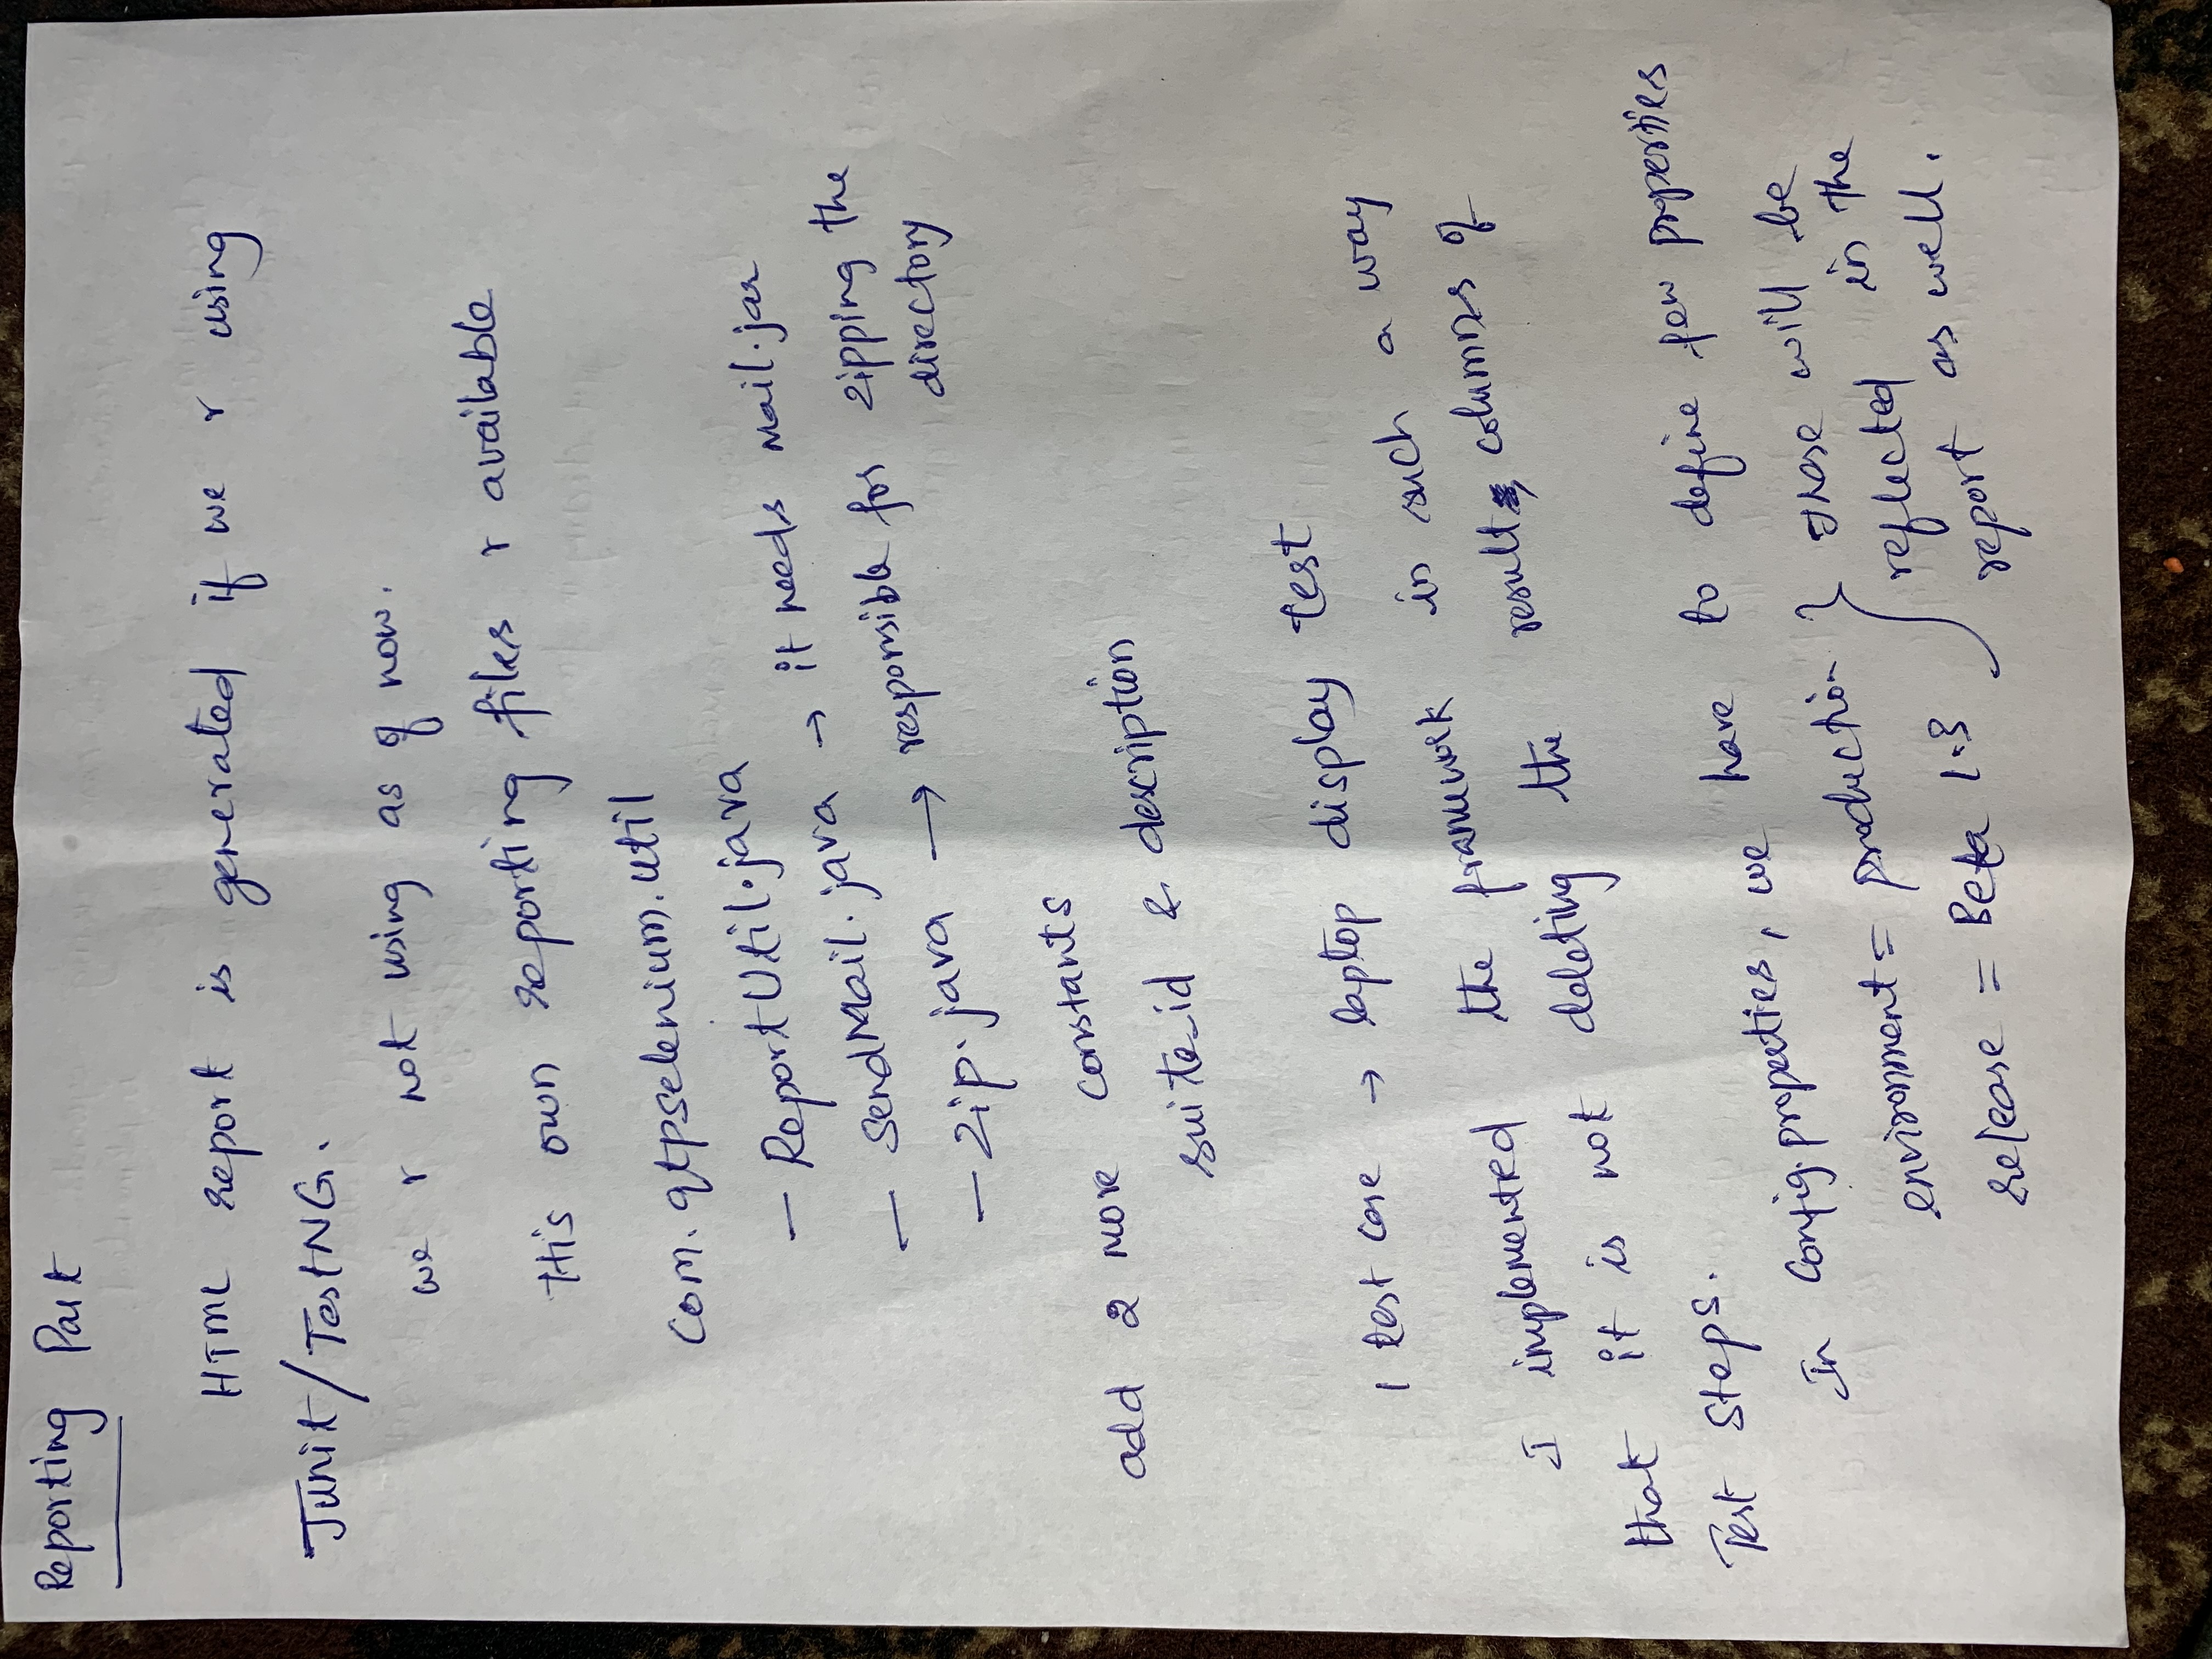 Reporting Part
HTML report is generated if we r using
Junit/TestNG.
we r not using as of now.
His own reporting files r available
Com.qtpselenium.util
- ReportUtil.java
- SendMail.java → it needs Mail.jar
- Zip.java → responsible for zipping the
directory
add 2 more constants
suite_id & description
1 test case → laptop display test
I implemented the framework in such a way
that it is not deleting the result columns of
Test Steps.
In Config.properties, we have to define few properties
environment = production } These will be
reflected in the
release = Beta 1.3
report as well.